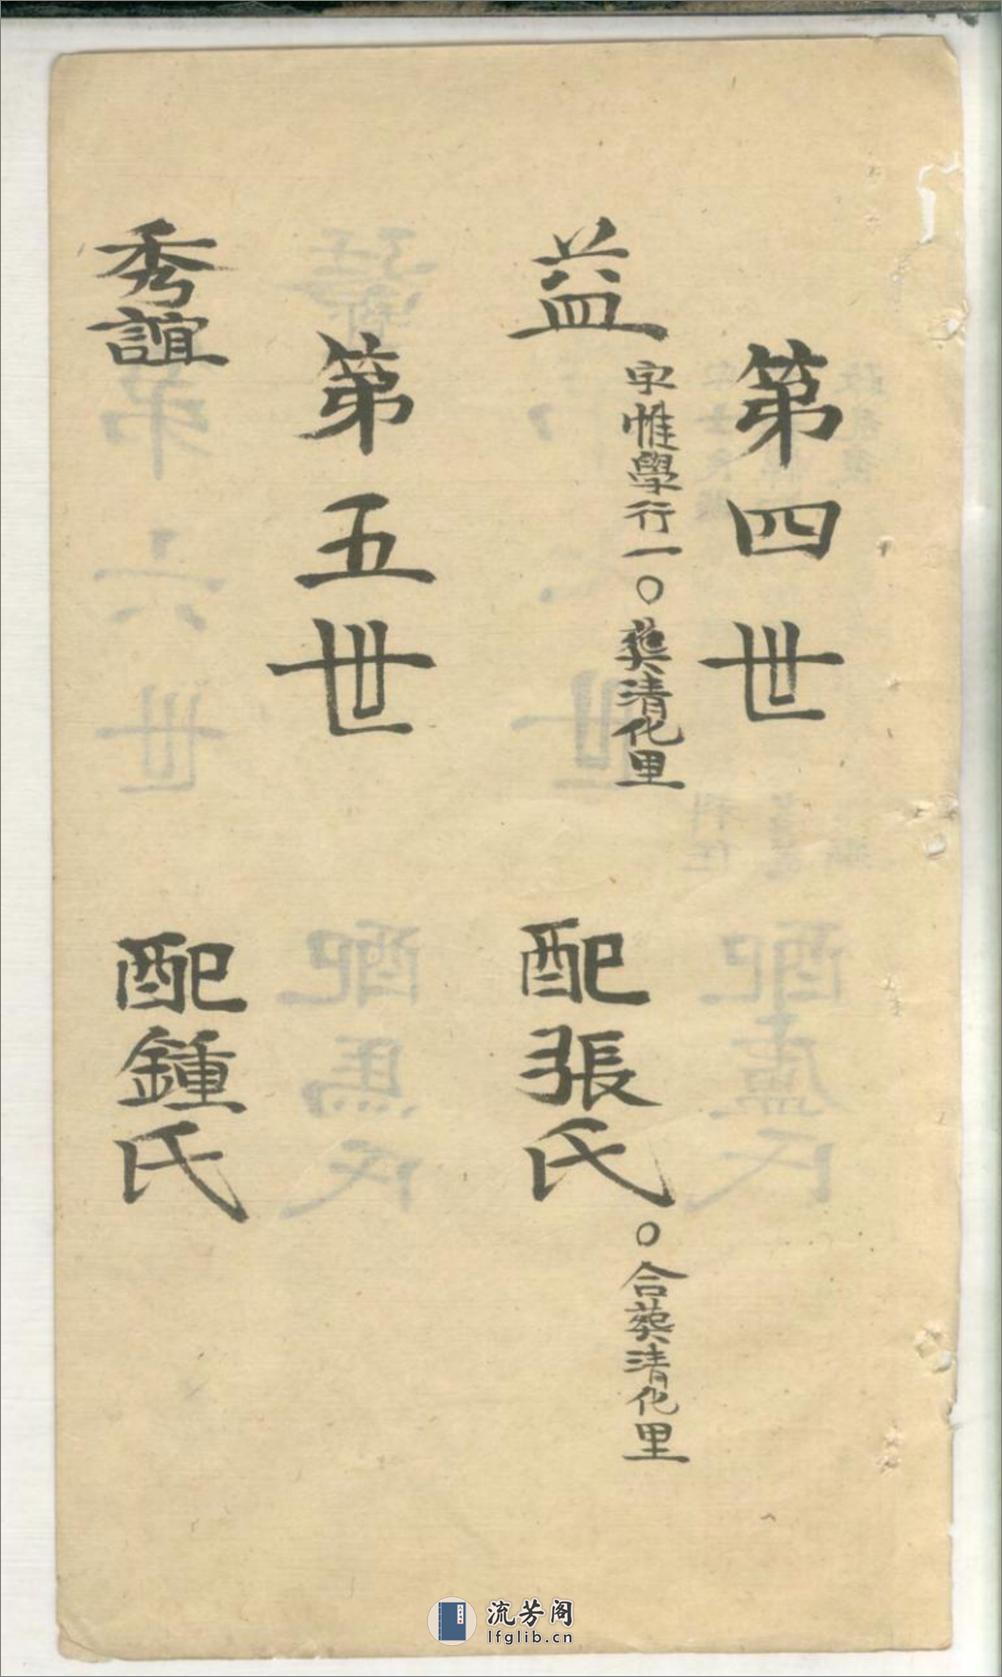 第四世
益
字惟學行一〇葬清化里
配張氏
〇合葬清化里
第五世
秀誼
配鍾氏
流芳阁
lfglib.cn